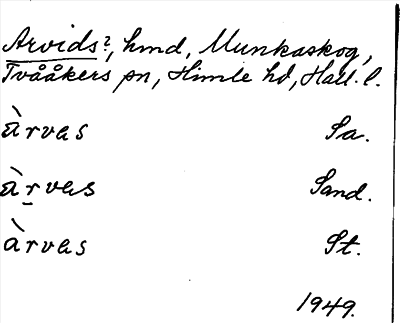 Arvids?, hmd, Munkaskog,
Tvååkers sn, Himle hd, Hall. l.
àrvas Sa.
àrvas Sand.
àrvas St.
1949.